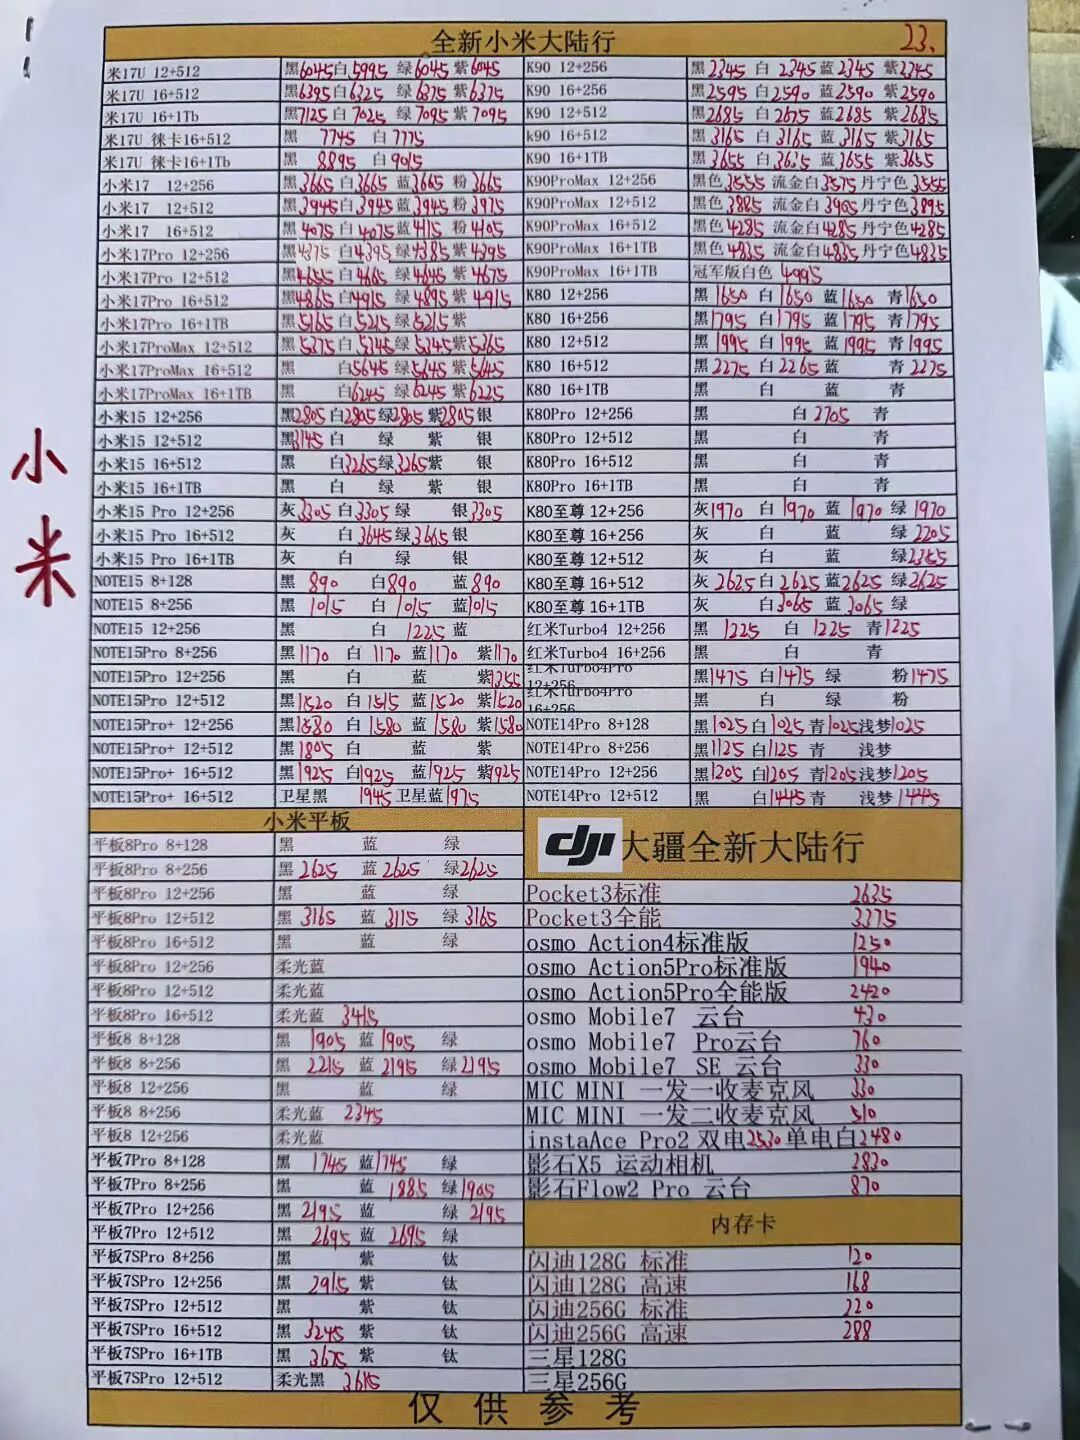 全新小米大陆行 23.
米17U 12+512 黑6045白5995 绿6045紫6045 K90 12+256 黑2345 白2345蓝2345 紫2345
米17U 16+512 黑6395白6325 绿6375紫6375 K90 16+256 黑2595白2590 蓝2590 紫2590
米17U 16+1Tb 黑7125 白7025 绿7095紫7095 K90 12+512 黑2685 白2675蓝2685 紫2685
米17U 徕卡16+512 黑 7745 白7775 k90 16+512 黑3165 白3165 蓝3165 紫3165
米17U 徕卡16+1Tb 黑 8895 白9015 K90 16+1TB 黑3655 白3635 蓝3655 紫3655
小米17 12+256 黑3665白3665 蓝3665 粉3665 K90ProMax 12+256 黑色3555 流金白3575 丹宁色3555
小米17 12+512 黑3945白3945蓝3945 粉3975 K90ProMax 12+512 黑色3885 流金白3905丹宁色3895
小米17 16+512 黑4075 白4075蓝4115 粉4105 K90ProMax 16+512 黑色4285 流金白4285丹宁色4285
小米17Pro 12+256 黑4375 白4395绿4385紫4395 K90ProMax 16+1TB 黑色4835 流金白4835丹宁色4835
小米17Pro 12+512 黑4655白4665 绿4645 紫4675 K90ProMax 16+1TB 冠军版白色 4995
小米17Pro 16+512 黑4865白4915 绿4895紫4915 K80 12+256 黑1650 白1650 蓝1650 青1650
小米17Pro 16+1TB 黑5165白5215绿5215紫 K80 16+256 黑1795 白1795 蓝1795 青1795
小米17ProMax 12+512 黑5375 白5345绿5345紫5365 K80 12+512 黑1995 白1995 蓝1995 青1995
小米17ProMax 16+512 黑 白5645 绿5645 紫5645 K80 16+512 黑2275 白2265 蓝 青2275
小米17ProMax 16+1TB 黑 白6245 绿6245 紫6225 K80 16+1TB 黑 白 蓝 青
小米15 12+256 黑2805 白2805绿2805 紫2805银 K80Pro 12+256 黑 白2705 青
小米15 12+512 黑3145白 绿 紫 银 K80Pro 12+512 黑 白 青
小米15 16+512 黑 白3265绿3265紫 银 K80Pro 16+512 黑 白 青
小米15 16+1TB 黑 白 绿 紫 银 K80Pro 16+1TB 黑 白 青
小米15 Pro 12+256 灰3305白3305绿 银3305 K80至尊 12+256 灰1970 白1970 蓝1970 绿1970
小米15 Pro 16+512 灰 白3645绿3665银 K80至尊 16+256 灰 白 蓝 绿2205
小米15 Pro 16+1TB 灰 白 绿 银 K80至尊 12+512 灰 白 蓝 绿2355
NOTE15 8+128 黑890 白890 蓝890 K80至尊 16+512 灰2625白2625蓝2625 绿2625
NOTE15 8+256 黑1015 白1015 蓝1015 K80至尊 16+1TB 灰 白3065 蓝3065 绿
NOTE15 12+256 黑 白 1225蓝 红米Turbo4 12+256 黑1225 白1225 青1225
NOTE15Pro 8+256 黑1170 白1170 蓝1170 紫1170 红米Turbo4 16+256 黑 白 青
NOTE15Pro 12+256 黑 白 蓝 紫1355 红米Turbo4Pro 12+256 黑1475 白1475 绿 粉1475
NOTE15Pro 12+512 黑1520 白1515 蓝1520 紫1520 红米Turbo4Pro 16+256 黑 白 绿 粉
NOTE15Pro+ 12+256 黑1580 白1580 蓝1580 紫1580 NOTE14Pro 8+128 黑1025白1025青1025浅梦1025
NOTE15Pro+ 12+512 黑1805 白 蓝 紫 NOTE14Pro 8+256 黑1125白1125 青 浅梦
NOTE15Pro+ 16+512 黑1925 白1925 蓝1925 紫1925 NOTE14Pro 12+256 黑1205 白1205 青1205浅梦1205
NOTE15Pro+ 16+512 卫星黑 1945卫星蓝1975 NOTE14Pro 12+512 黑 白1445青 浅梦1445
小米
小米平板
平板8Pro 8+128 黑 蓝 绿
平板8Pro 8+256 黑2625 蓝2625 绿2625
平板8Pro 12+256 黑 蓝 绿
平板8Pro 12+512 黑3165 蓝3115 绿3165
平板8Pro 16+512 黑 蓝 绿
平板8Pro 12+256 柔光蓝
平板8Pro 12+512 柔光蓝
平板8Pro 16+512 柔光蓝 3415
平板8 8+128 黑 1905 蓝1905 绿
平板8 8+256 黑 2215 蓝2195 绿2195
平板8 12+256 黑 蓝 绿
平板8 8+256 柔光蓝 2345
平板8 12+256 柔光蓝
平板7Pro 8+128 黑 1745 蓝1745 绿
平板7Pro 8+256 黑 蓝1885 绿1905
平板7Pro 12+256 黑2195 蓝 绿2195
平板7Pro 12+512 黑 2695 蓝2695 绿
平板7SPro 8+256 黑 紫 钛
平板7SPro 12+256 黑 2915 紫 钛
平板7SPro 12+512 黑 紫 钛
平板7SPro 16+512 黑 3245 紫 钛
平板7SPro 16+1TB 黑 3675 紫 钛
平板7SPro 12+512 柔光黑
dji 大疆全新大陆行
Pocket3标准 2635
Pocket3全能 3375
osmo Action4标准版 1250
osmo Action5Pro标准版 1940
osmo Action5Pro全能版 2420
osmo Mobile7 云台 430
osmo Mobile7 Pro云台 760
osmo Mobile7 SE 云台 330
MIC MINI 一发一收麦克风 330
MIC MINI 一发二收麦克风 510
instaAce Pro2 双电2530单电白2480
影石X5 运动相机 2830
影石Flow2 Pro 云台 870
内存卡
闪迪128G 标准 120
闪迪128G 高速 168
闪迪256G 标准 220
闪迪256G 高速 288
三星128G
三星256G
仅供参考